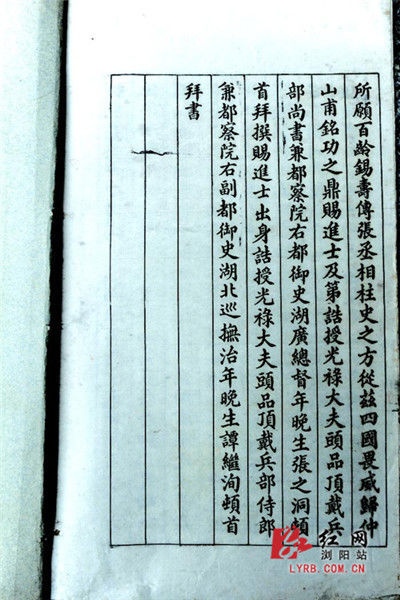 所願百齡錫壽傳張丞相柱史之方從茲四國畏威歸仲
山甫銘功之鼎賜進士及第誥授光祿大夫頭品頂戴兵
部尚書兼都察院右都御史湖廣總督年晚生張之洞頓
首拜撰賜進士出身誥授光祿大夫頭品頂戴兵部侍郎
兼都察院右副都御史湖北巡撫治年晚生譚繼洵頓首
拜書
红网
浏阳站
LYRB.COM.CN